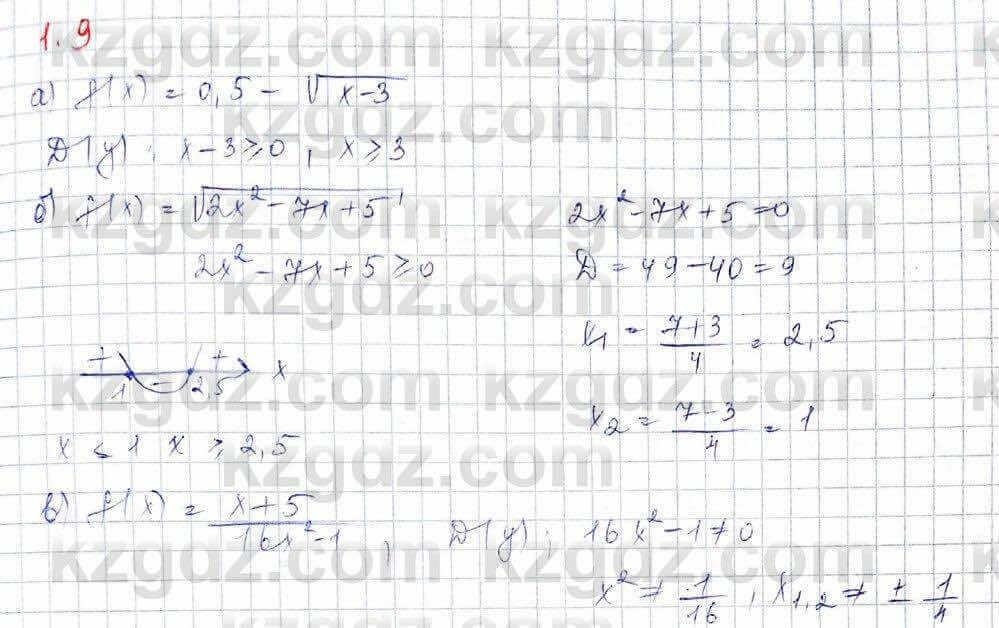 1.9
а) f(x) = 0,5 - √(x-3)
D(y); x-3≥0, x≥3
б) f(x) = √(2x²-7x+5)
2x²-7x+5≥0
+ - + x
1 2,5
x ≤ 1 x ≥ 2,5
2x²-7x+5=0
D = 49-40=9
x₁ = (7+3)/4 = 2,5
x₂ = (7-3)/4 = 1
в) f(x) = (x+5)/(16x²-1), D(y); 16x²-1≠0
x² ≠ 1/16, x₁,₂ ≠ ± 1/4
kzgdz.com kzgdz.com
kzgdz.com
kzgdz.com kzgdz.com
kzgdz.com
kzgdz.com kzgdz.com
kzgdz.com
kzgdz.com kzgdz.com